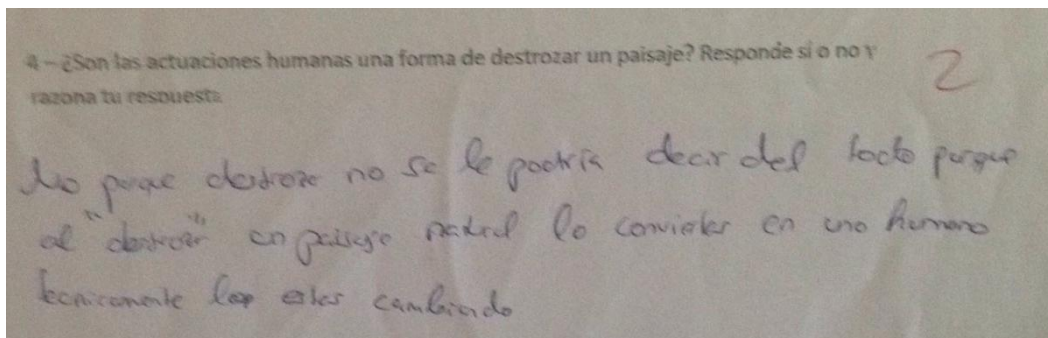 4 – ¿Son las actuaciones humanas una forma de destrozar un paisaje? Responde si o no y
razona tu respuesta
2
No porque destroze no se le podría decir del todo porque
al "destrozar" un paisaje natural lo conviertes en uno humano
tecnicamente lo estas cambiando